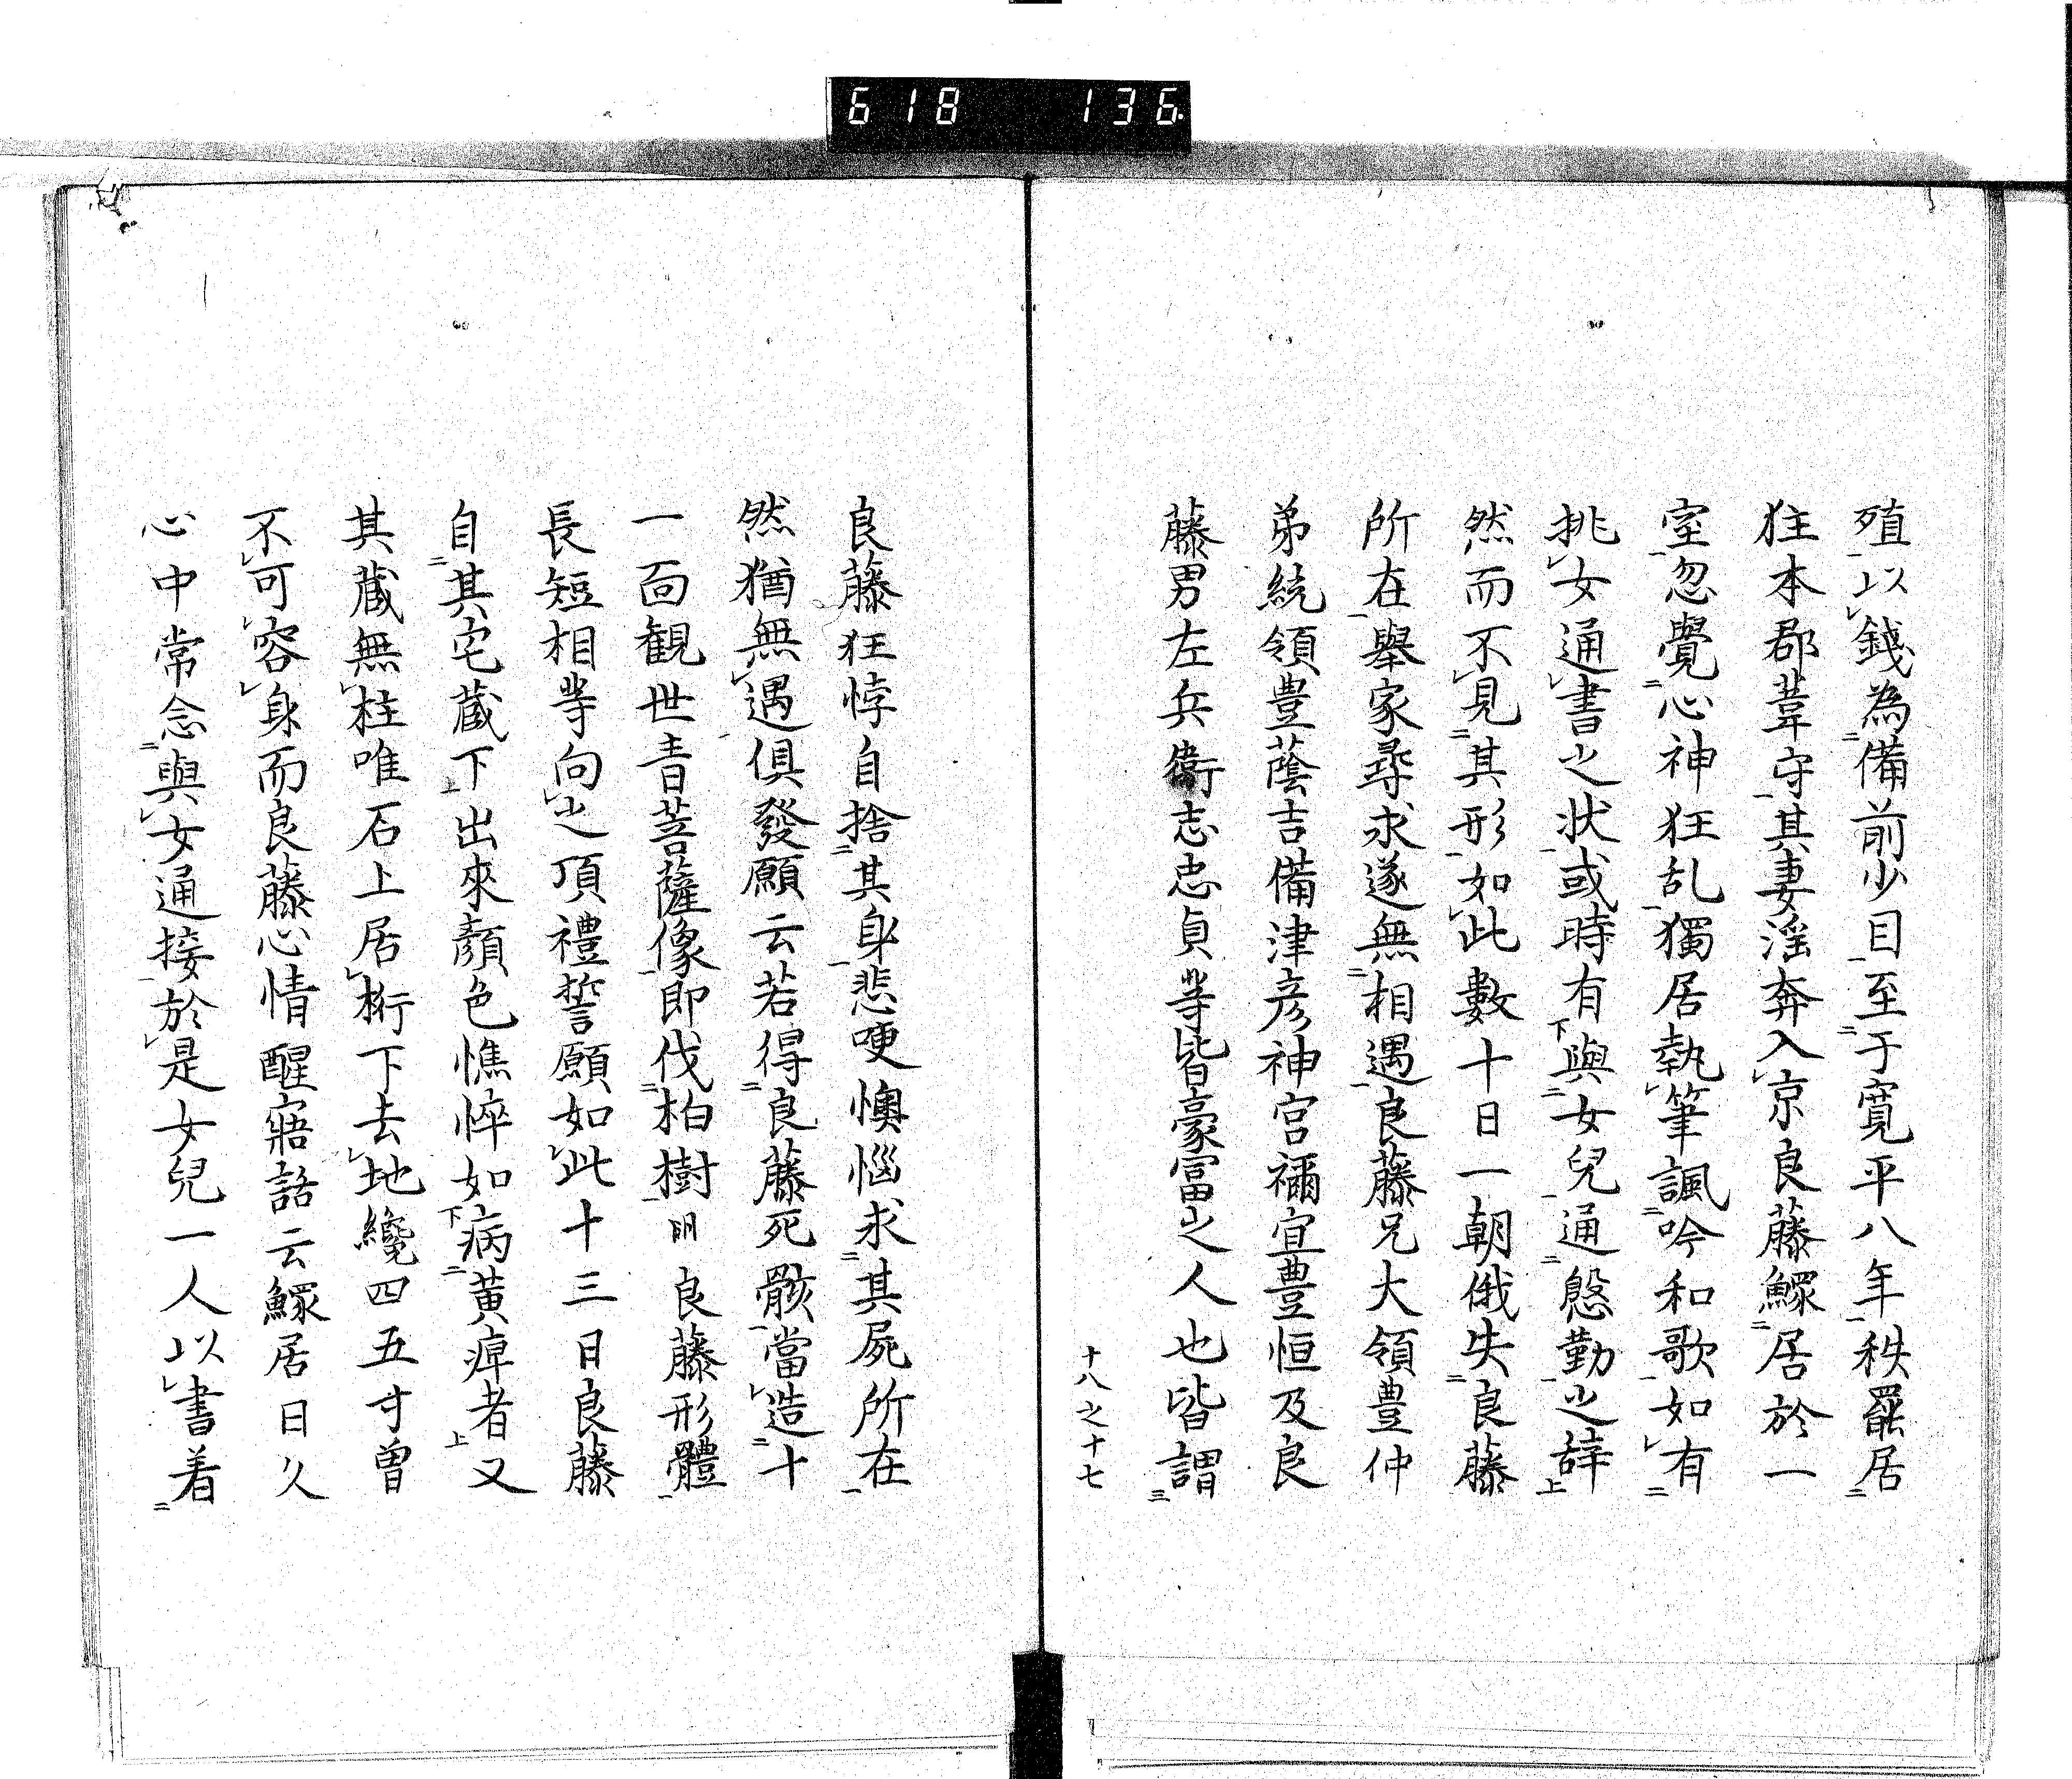 618 136
殖以錢為備前少目至于寬平八年秩罷居
住本郡葦守其妻淫奔入京良藤鰥居於一
室忽覺心神狂乱獨居執筆諷吟和歌如有
挑女通書之状或時有與女兒通慇勤之辞
然而不見其形如此數十日一朝俄失良藤
所在舉家尋求遂無相遇良藤兄大領豊仲
弟統領豊蔭吉備津彦神宮禰宜豊恒及良
藤男左兵衛志忠貞等皆豪富之人也皆謂
十八之十七
良藤狂悖自捨其身悲哽懊惱求其屍所在
然猶無遇俱發願云若得良藤死骸當造十
一面観世音菩薩像即伐柏樹 良藤形體
長短相等向之頂禮誓願如此十三日良藤
自其宅蔵下出來顏色憔悴如病黃疸者又
其蔵無柱唯石上居桁下去地纔四五寸曽
不可容身而良藤心情醒寤語云鰥居日久
心中常念與女通接於是女兒一人以書着